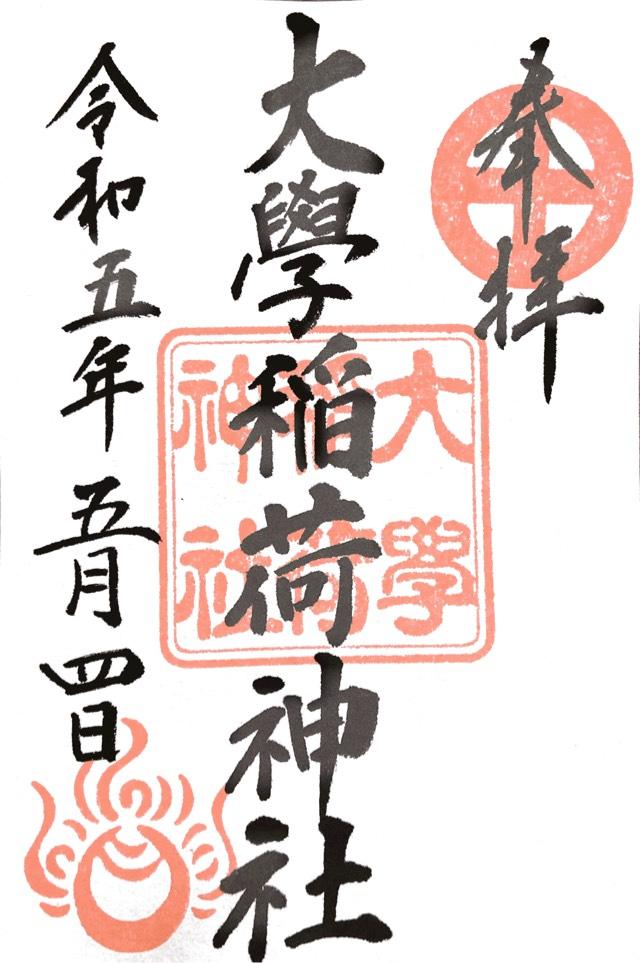 奉拝
大學稲荷神社
大學稲荷神社
令和五年五月四日